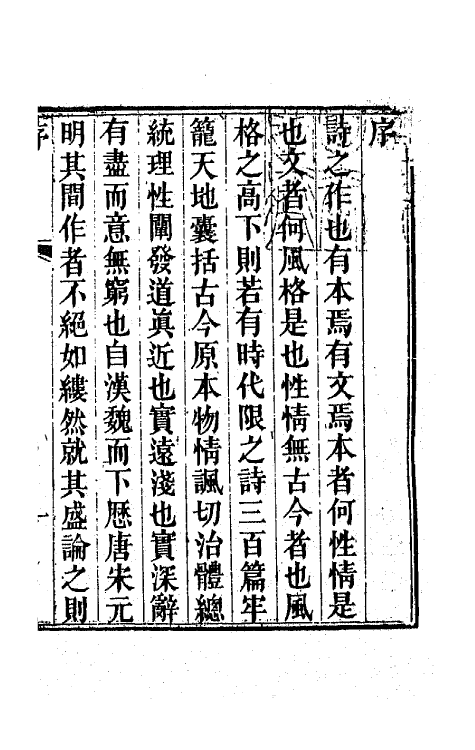 序
詩之作也有本焉有文焉本者何性情是
也文者何風格是也性情無古今者也風
格之高下則若有時代限之詩三百篇牢
籠天地囊括古今原本物情諷切治體總
統理性闡發道眞近也實遠淺也實深辭
有盡而意無窮也自漢魏而下歷唐宋元
明其間作者不絕如縷然就其盛論之則
序
一